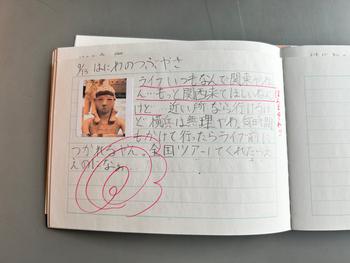 9/13 はにわのつぶやき
ライブいつもなんで関東やね
ん…もっと関西来てほしいねん
けど…近い所なら行けるけ
ど横浜は無理やわ。何時間
もかけて行ったらライブ前に
つかれるやん。全国ツアーしてくれたらええ
のになぁ。